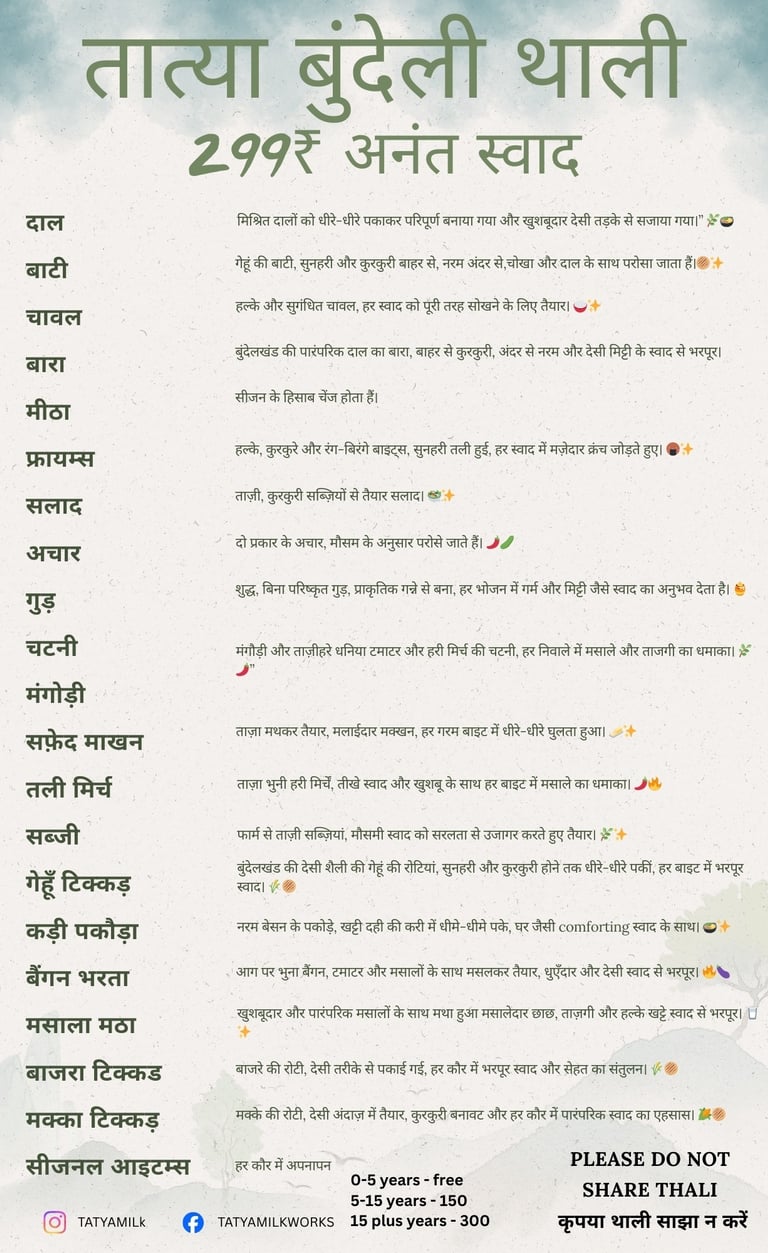 तात्या बुंदेली थाली
299₹ अनंत स्वाद
दाल
मिश्रित दालों को धीरे-धीरे पकाकर परिपूर्ण बनाया गया और खुशबूदार देसी तड़के से सजाया गया।" 🌿🍲
बाटी
गेहूं की बाटी, सुनहरी और कुरकुरी बाहर से, नरम अंदर से,चोखा और दाल के साथ परोसा जाता हैं।🥮✨
चावल
हल्के और सुगंधित चावल, हर स्वाद को पूरी तरह सोखने के लिए तैयार। 🍚✨
बारा
बुंदेलखंड की पारंपरिक दाल का बारा, बाहर से कुरकुरी, अंदर से नरम और देसी मिट्टी के स्वाद से भरपूर।
मीठा
सीजन के हिसाब चेंज होता हैं।
फ्रायम्स
हल्के, कुरकुरे और रंग-बिरंगे बाइट्स, सुनहरी तली हुई, हर स्वाद में मज़ेदार क्रंच जोड़ते हुए। 🍘✨
सलाद
ताज़ी, कुरकुरी सब्ज़ियों से तैयार सलाद। 🥗✨
अचार
दो प्रकार के अचार, मौसम के अनुसार परोसे जाते हैं। 🌶️🥒
गुड़
शुद्ध, बिना परिष्कृत गुड़, प्राकृतिक गन्ने से बना, हर भोजन में गर्म और मिट्टी जैसे स्वाद का अनुभव देता है। 🍯
चटनी
मंगौड़ी और ताज़ीहरे धनिया टमाटर और हरी मिर्च की चटनी, हर निवाले में मसाले और ताजगी का धमाका। 🌿
🌶️"
मंगोड़ी
सफ़ेद माखन
ताज़ा मथकर तैयार, मलाईदार मक्खन, हर गरम बाइट में धीरे-धीरे घुलता हुआ। 🧈✨
तली मिर्च
ताज़ा भुनी हरी मिर्चें, तीखे स्वाद और खुशबू के साथ हर बाइट में मसाले का धमाका। 🌶️🔥
सब्जी
फार्म से ताज़ी सब्ज़ियां, मौसमी स्वाद को सरलता से उजागर करते हुए तैयार। 🌿✨
गेहूँ टिक्कड़
बुंदेलखंड की देसी शैली की गेहूं की रोटियां, सुनहरी और कुरकुरी होने तक धीरे-धीरे पकीं, हर बाइट में भरपूर
स्वाद। 🌾🥮
कड़ी पकौड़ा
नरम बेसन के पकोड़े, खट्टी दही की करी में धीमे-धीमे पके, घर जैसी comforting स्वाद के साथ। 🍲✨
बैंगन भरता
आग पर भुना बैंगन, टमाटर और मसालों के साथ मसलकर तैयार, धुएँदार और देसी स्वाद से भरपूर। 🔥🍆
मसाला मठा
खुशबूदार और पारंपरिक मसालों के साथ मथा हुआ मसालेदार छाछ, ताज़गी और हल्के खट्टे स्वाद से भरपूर। 🥛
✨
बाजरा टिक्कड
बाजरे की रोटी, देसी तरीके से पकाई गई, हर कौर में भरपूर स्वाद और सेहत का संतुलन। 🌾🥮
मक्का टिक्कड़
मक्के की रोटी, देसी अंदाज़ में तैयार, कुरकुरी बनावट और हर कौर में पारंपरिक स्वाद का एहसास। 🌽🥮
सीजनल आइटम्स
हर कौर में अपनापन
0-5 years - free
5-15 years - 150
15 plus years - 300
PLEASE DO NOT
SHARE THALI
कृपया थाली साझा न करें
TATYAMILk
TATYAMILKWORKS